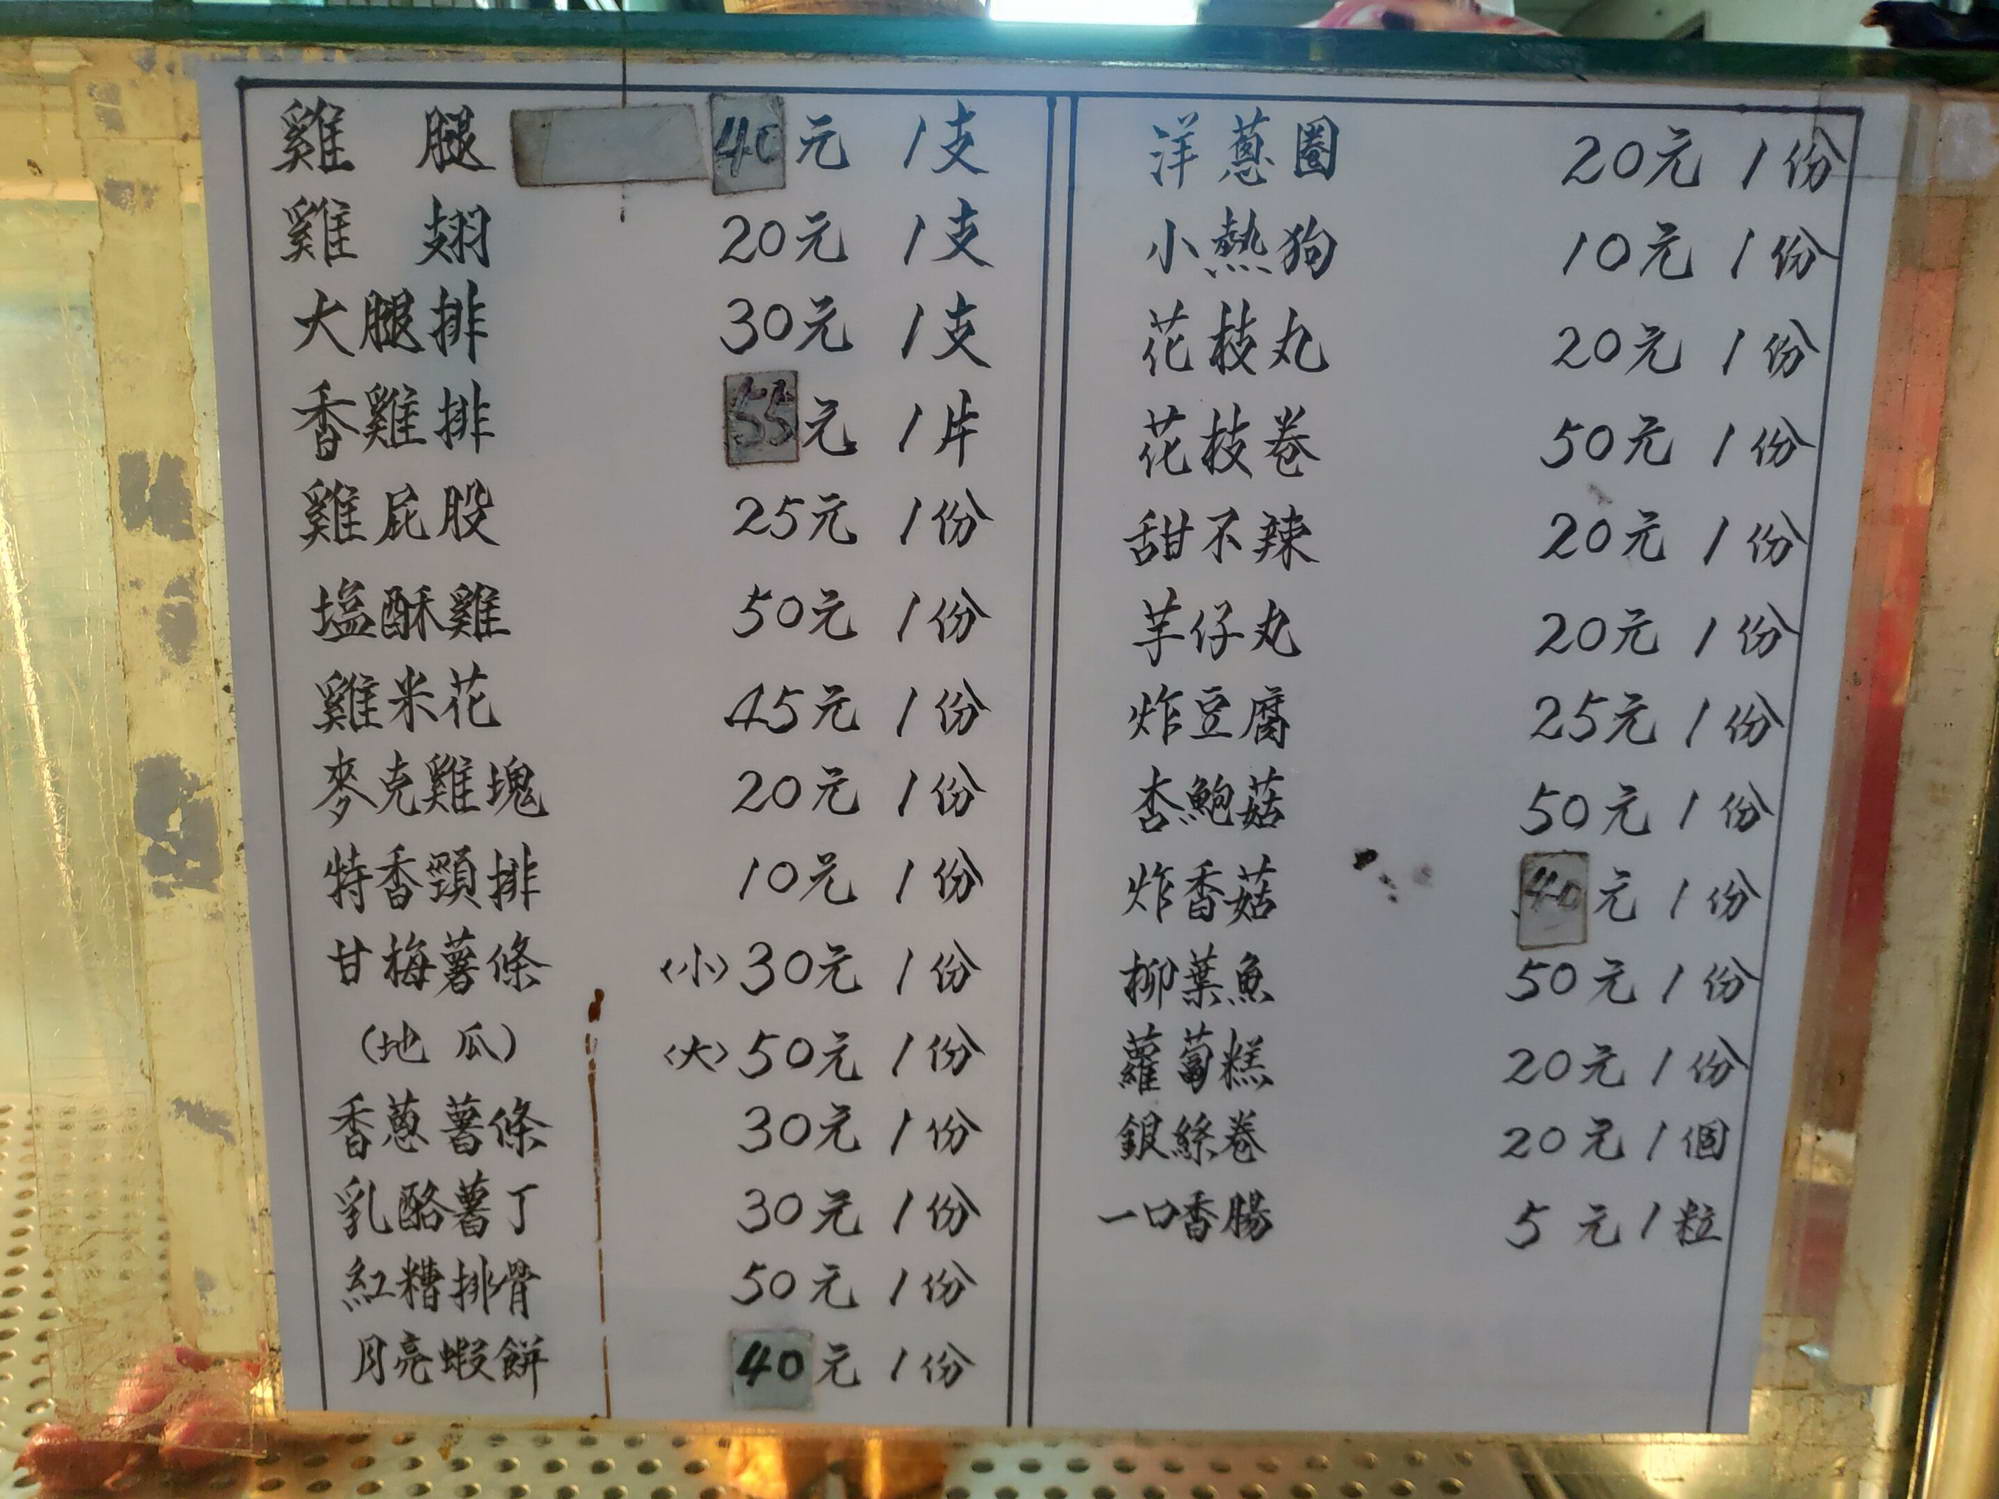 雞腿 40元 1支
雞翅 20元 1支
大腿排 30元 1支
香雞排 55元 1片
雞屁股 25元 1份
塩酥雞 50元 1份
雞米花 45元 1份
麥克雞塊 20元 1份
特香頸排 10元 1份
甘梅薯條 〈小〉30元 1份
(地瓜) 〈大〉50元 1份
香蔥薯條 30元 1份
乳酪薯丁 30元 1份
紅糟排骨 50元 1份
月亮蝦餅 40元 1份
洋蔥圈 20元 1份
小熱狗 10元 1份
花枝丸 20元 1份
花枝卷 50元 1份
甜不辣 20元 1份
芋仔丸 20元 1份
炸豆腐 25元 1份
杏鮑菇 50元 1份
炸香菇 40元 1份
柳葉魚 50元 1份
蘿蔔糕 20元 1份
銀絲卷 20元 1個
一口香腸 5元 1粒